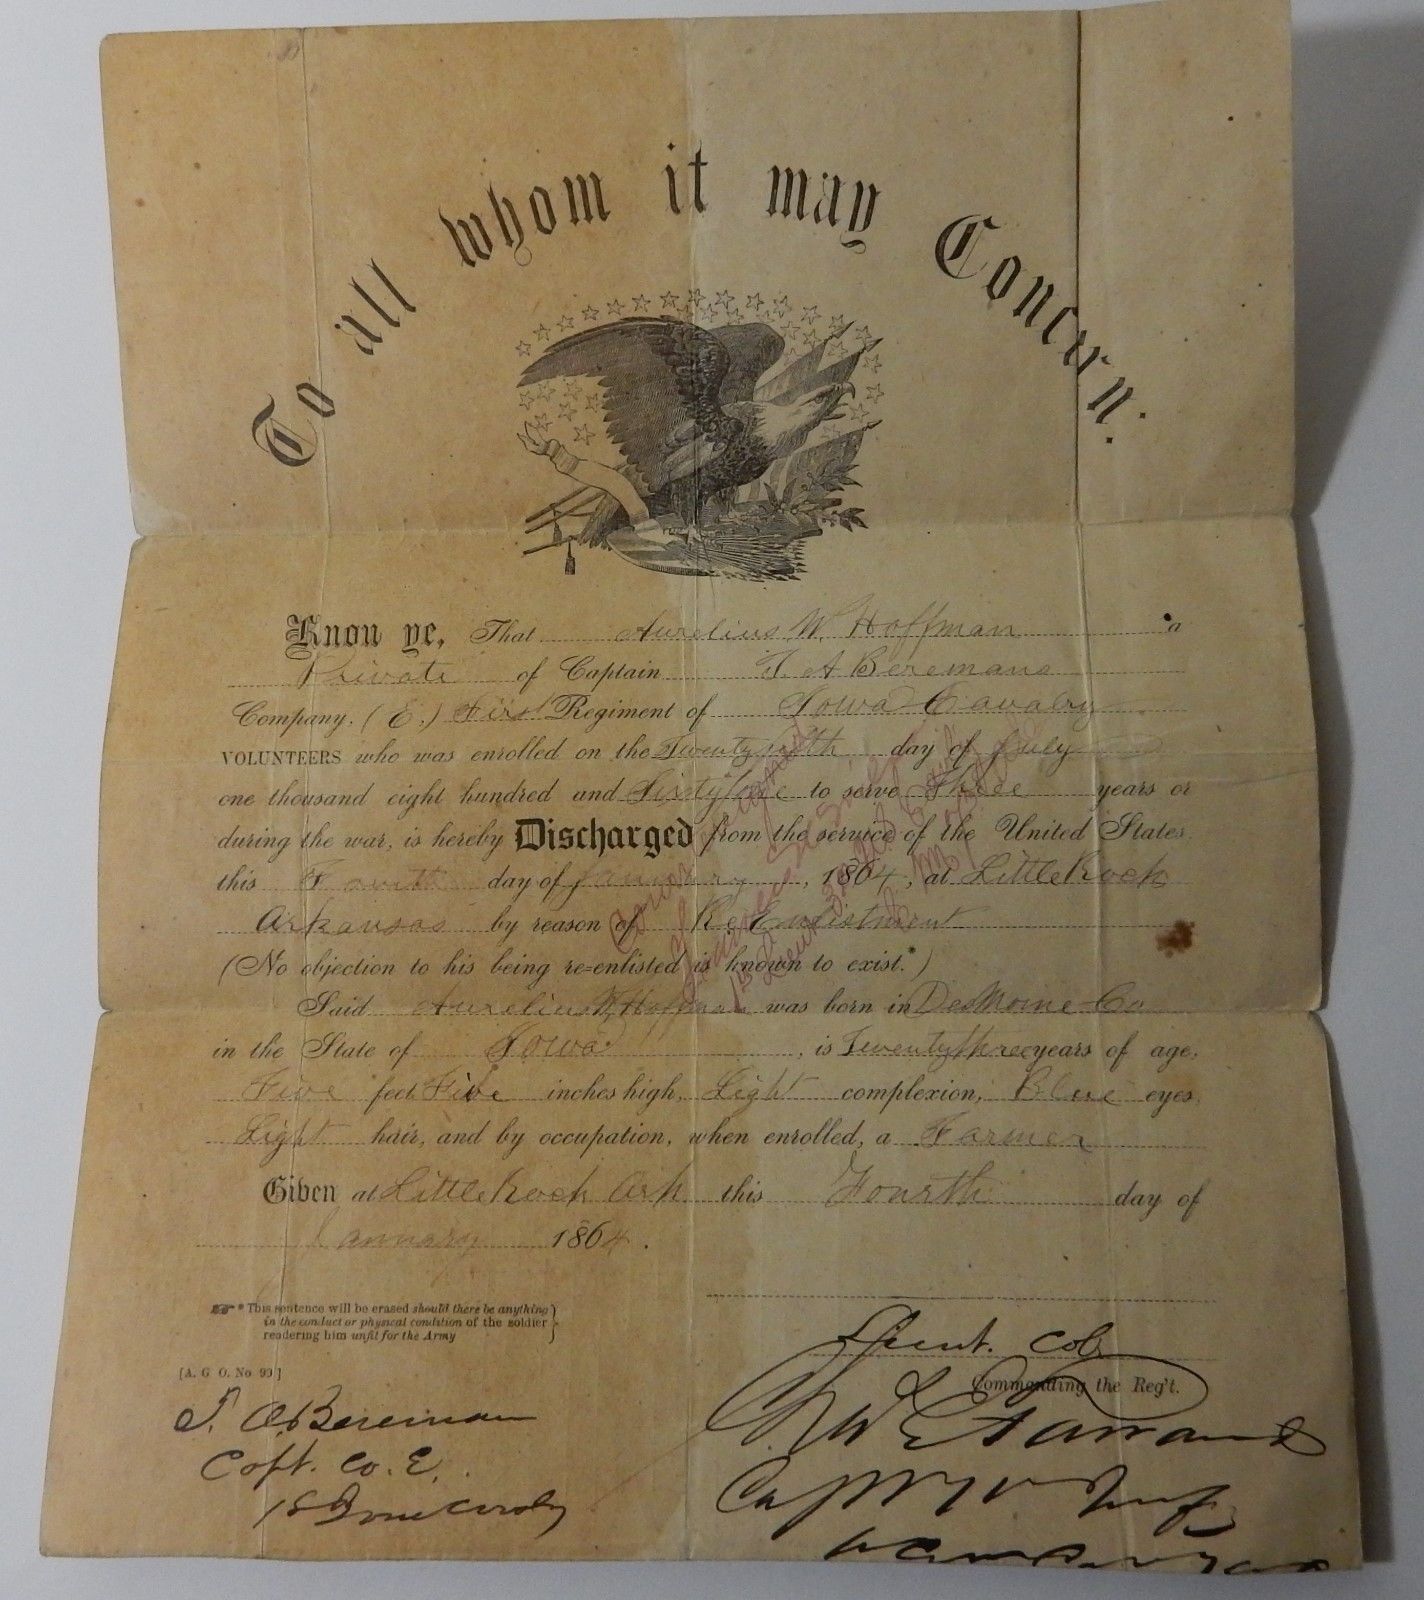 To all whom it may Concern:
Know ye, That Aurelius W. Hoffman a
Private of Captain T. A Beremans
Company. (E.) First Regiment of Iowa Cavalry
VOLUNTEERS who was enrolled on the day of July
one thousand eight hundred and Sixty One to serve Three years or
during the war, is hereby Discharged from the service of the United States
this Fourth day of January, 1864, at Little Rock
Arkansas by reason of Re Enlistment
(No objection to his being re=enlisted is known to exist.*)
Said Aurelius W Hoffman was born in Des Moine Co
in the State of Iowa, is Twenty three years of age,
Five feet Five inches high, Light complexion, Blue eyes,
Light hair, and by occupation, when enrolled, a Farmer
Given at Little Rock Ark this Fourth day of
January 1864.
☞ * This sentence will be erased should there be anything
in the conduct or physical condition of the soldier
rendering him unfit for the Army
[A. G O. No 99]
Lieut. Col
Commanding the Reg't.
T. A. Bereman
Capt. Co. E.
1st Iowa Cavalry
1st Lieut